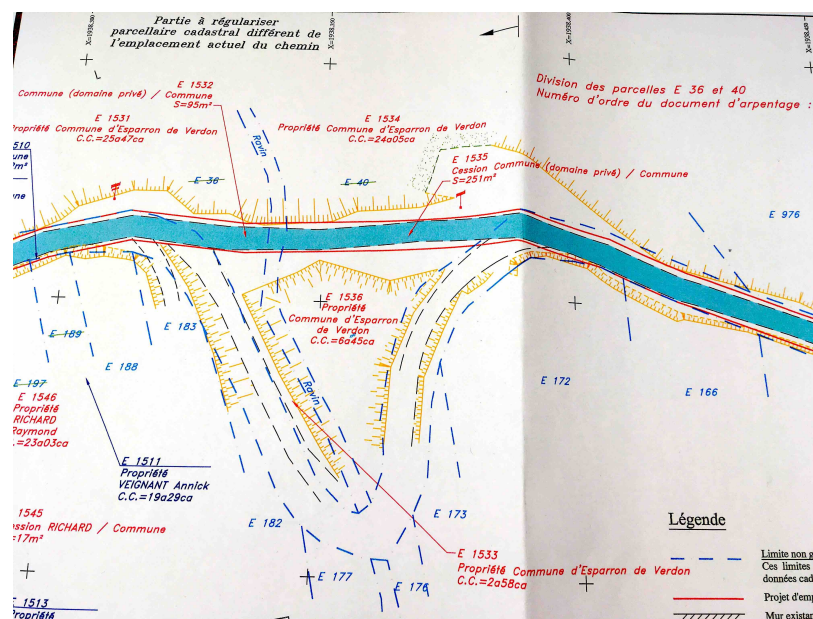 Partie à régulariser
parcellaire cadastral différent de
l'emplacement actuel du chemin
X=1938.300
X=1938.350
X=1938.400
X=1938.450
Division des parcelles E 36 et 40
Numéro d'ordre du document d'arpentage :
E 1532
Commune (domaine privé) / Commune
S=95m²
E 1531
Propriété Commune d'Esparron de Verdon
C.C.=25a47ca
E 1534
Propriété Commune d'Esparron de Verdon
C.C.=24a05ca
E 1535
Cession Commune (domaine privé) / Commune
S=251m²
Ravin
E 36
E 40
E 976
E 1536
Propriété
Commune d'Esparron
de Verdon
C.C.=6a45ca
E 183
E 189
E 188
E 197
E 172
E 166
E 1546
Propriété
RICHARD
Raymond
C.C.=23a03ca
Ravin
E 1511
Propriété
VEIGNANT Annick
C.C.=19a29ca
1545
RICHARD / Commune
=17m²
E 182
E 173
E 1533
Propriété Commune d'Esparron de Verdon
C.C.=2a58ca
E 177
E 176
E 1513
Propriété
Légende
Limite non
Ces limites
données
Projet
Mur